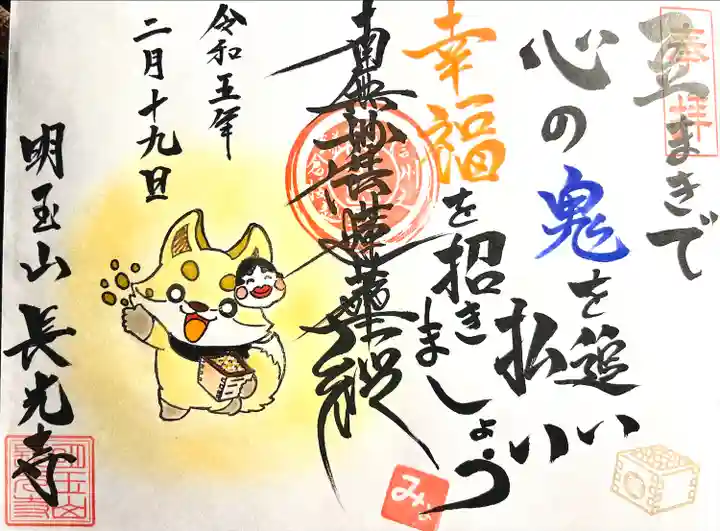 奉拝
豆まきで
心の鬼を追い
払い
幸福
を招き
ましょう
南無妙法蓮華経
令和五年
二月十九日
明玉山 長光寺